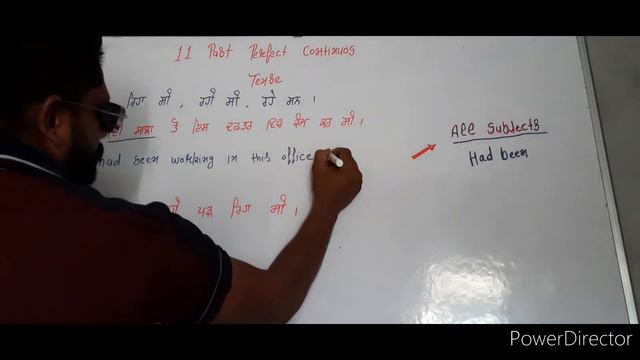 11 Past Perfect Continuos
Tense
ਰਿਹਾ ਸੀ , ਰਹੀ ਸੀ , ਰਹੇ ਸਨ ।
ਸਾਲਾ ਤੋਂ ਇਸ ਦਫਤਰ ਵਿੱਚ ਕੰਮ ਕਰ ਸੀ ।
had been working in this office
ਪੜ ਰਿਹਾ ਸੀ ।
All Subjects
Had been
PowerDirector